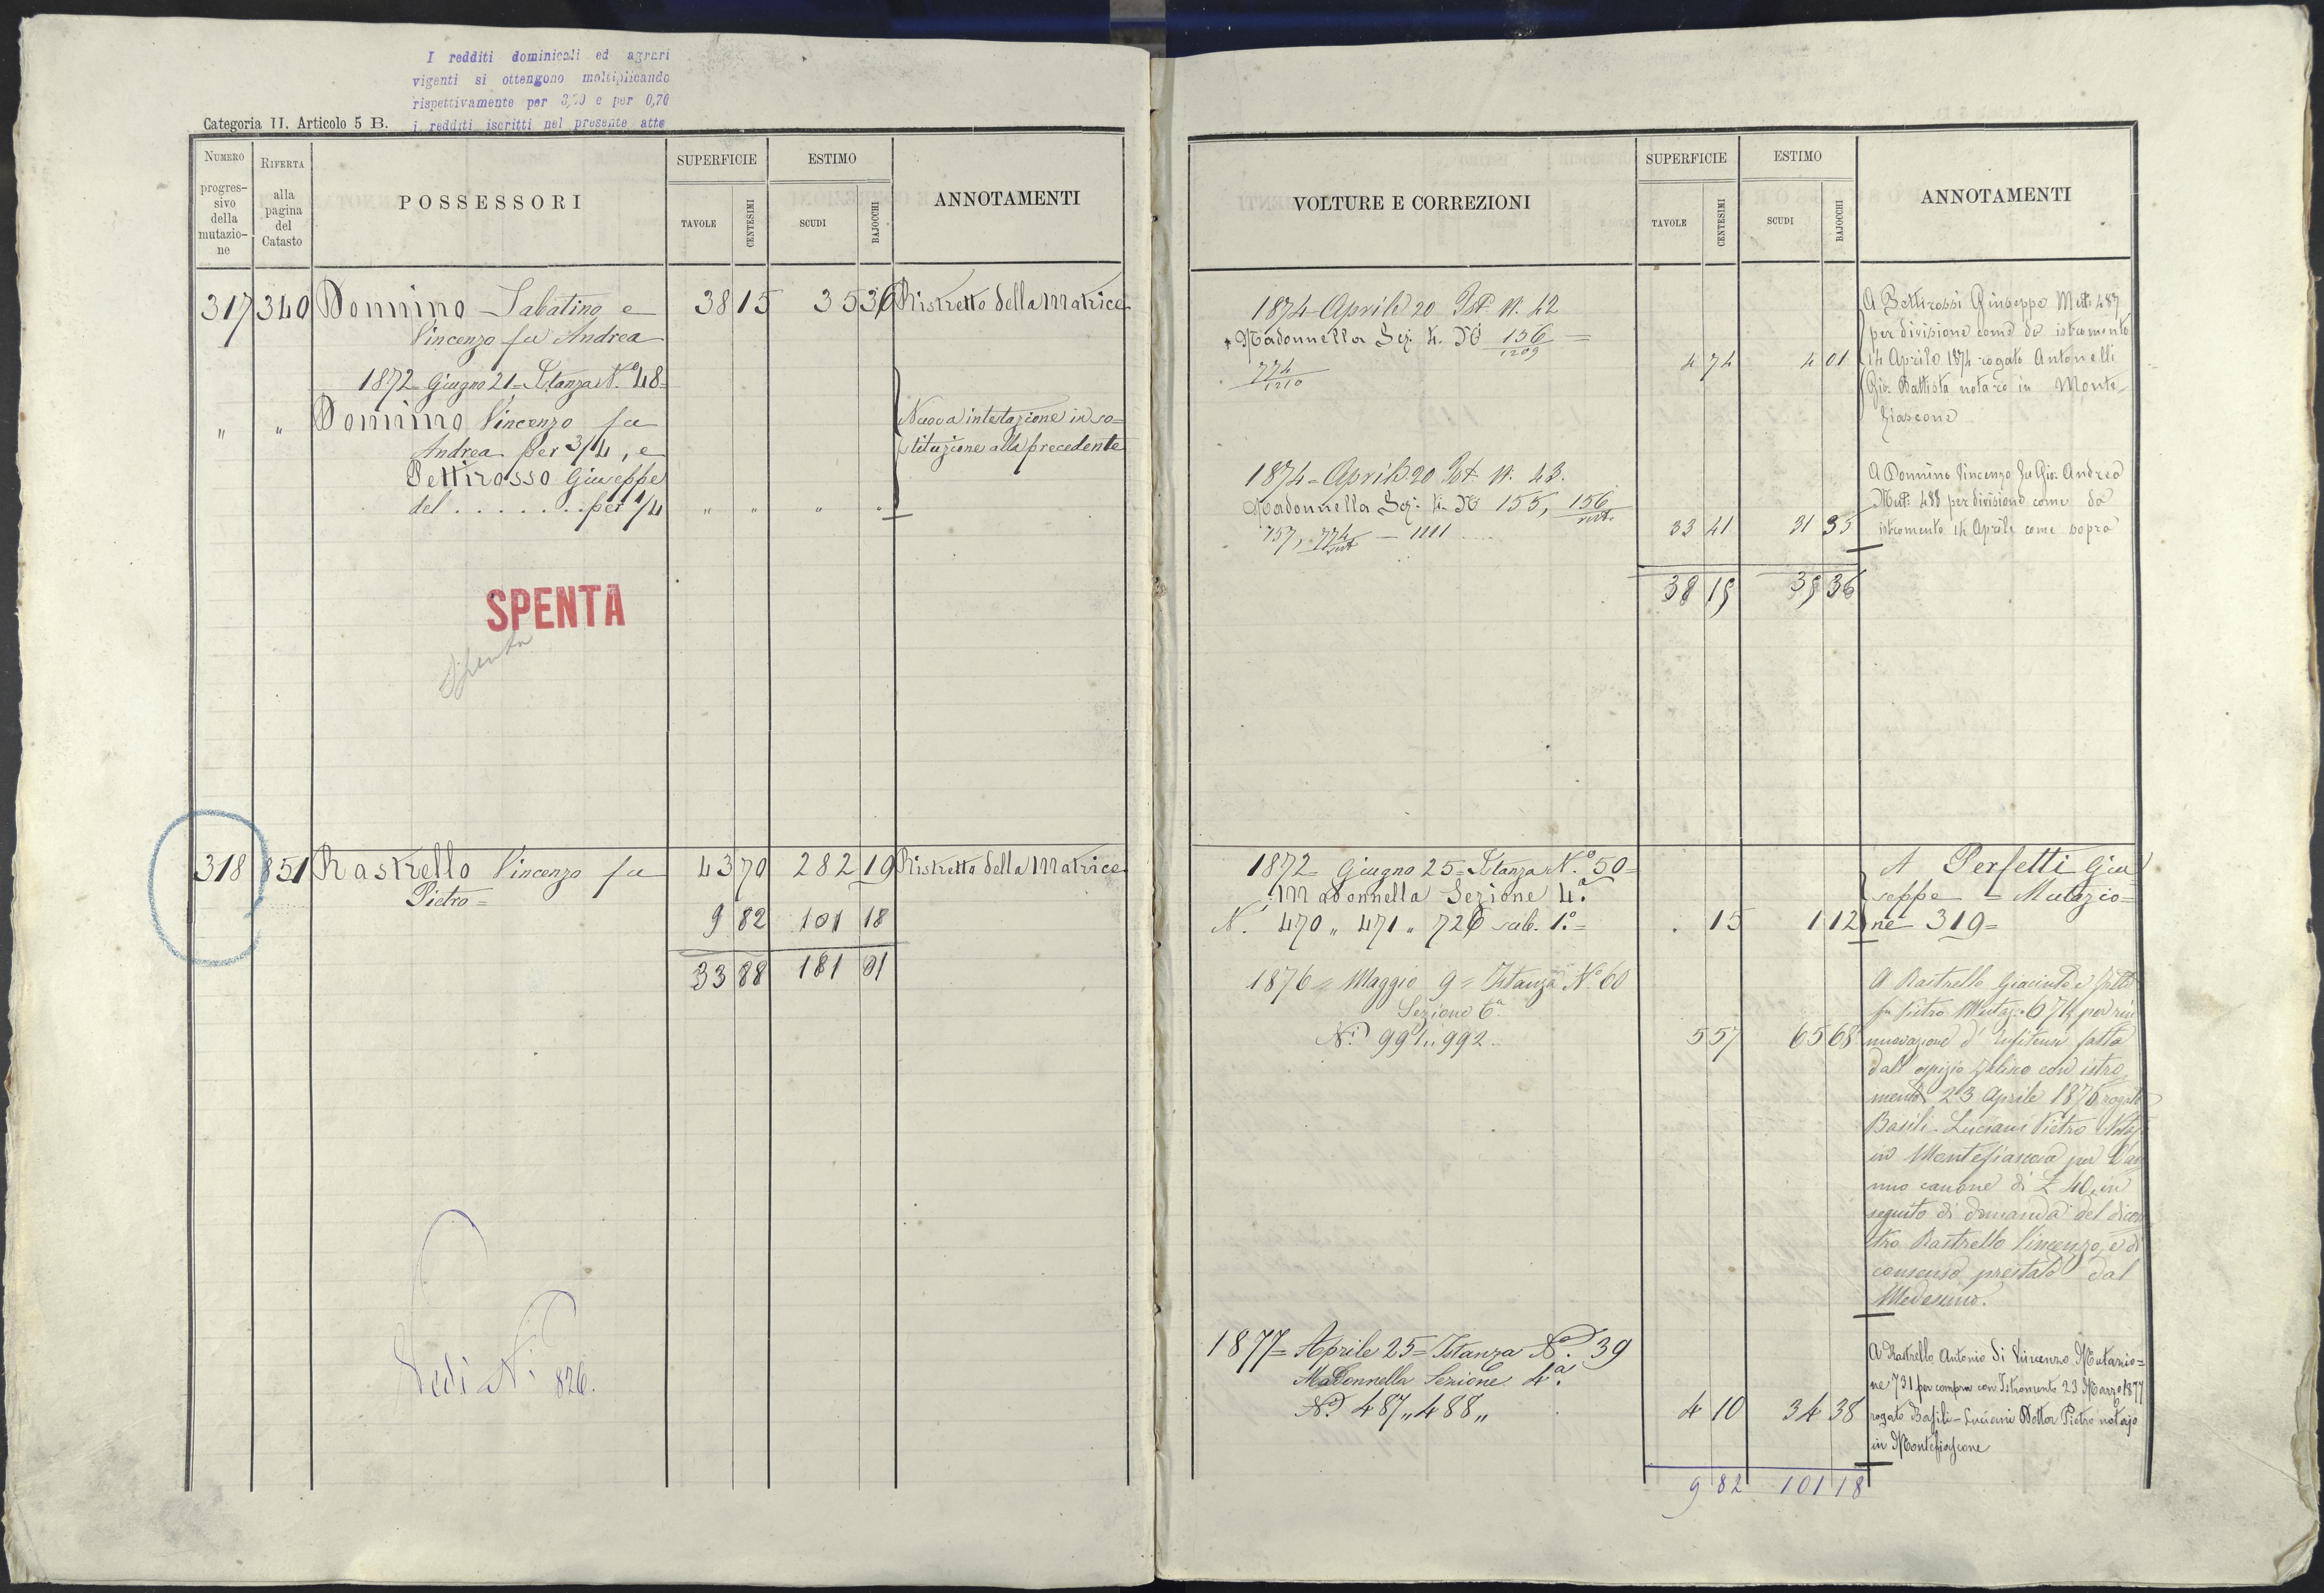 I redditi dominicali ed agrari
vigenti si ottengono moltiplicando
rispettivamente per 3,20 e per 0,70
i redditi iscritti nel presente atto
Categoria II. Articolo 5 B.
NUMERO progressivo della mutazione
RIFERTA alla pagina del Catasto
POSSESSORI
SUPERFICIE
TAVOLE
CENTESIMI
ESTIMO
SCUDI
BAJOCCHI
ANNOTAMENTI
317 340 Donnino Sabatino e 38 15 35 36 Ristretto della Matrice
Vincenzo fu Andrea
1872 = Giugno 21 = Istanza N.º 48 =
" " Donnino Vincenzo fu Nuova intestazione in so=
Andrea per 3/4, e stituzione alla precedente
Pettirosso Giuseppe
del . . . . . . . per 1/4 " " " "
SPENTA
Spenta
318 851 Rastrello Vincenzo fu 43 70 282 19 Ristretto della Matrice
Pietro =
9 82 101 18
33 88 181 01
Vedi N.º 826.
VOLTURE E CORREZIONI
SUPERFICIE
TAVOLE
CENTESIMI
ESTIMO
SCUDI
BAJOCCHI
ANNOTAMENTI
1874 Aprile 20 Ist. N. 42
Madonnella Sez. 4. N.i 156/1209 =
774/1210
4 74 4 01
A Pettirossi Giuseppe Mut. 487
per divisione come da istromento
14 Aprile 1874 rogato Antonelli
Gio. Battista notaro in Monte
fiascone
1874 = Aprile 20 Ist. N. 43.
Madonnella Sez. 4. N.i 155, 156/rest.
757, 774/rest. — 1111
33 41 31 35
A Donnino Vincenzo fu Gio. Andrea
Mut. 488 per divisione come da
istromento 14 Aprile come sopra
38 15 35 36
1872 = Giugno 25 = Istanza N.º 50 =
Madonnella Sezione 4.ª
N. 470 " 471 " 726 sub. 1.º =
. 15 1 12
A Perfetti Giu
seppe = Mutazio=
ne 319 =
1876 = Maggio 9 = Istanza N.º 60
Sezione 6.ª
N.i 991 " 992.
5 57 65 68
A Rastrello Giacinto e
fu Pietro Mutaz. 674 per rin
nuovazione d' enfiteusi fatta
dall' ospizio con istro
mento 23 Aprile 1876 rogato
Basili-Luciani Pietro Notajo
in Montefiascone per l'an
nuo canone di £ 40, in
seguito di domanda del dicon
tro Rastrello Vincenzo, e di
consenso prestato dal
Medesimo.
1877 = Aprile 25 = Istanza N.º 39
Madonnella Sezione 4.ª
N.i 487 " 488 "
4 10 34 38
A Rastrello Antonio di Vincenzo Mutazio=
ne 731 per compra con Istromento 23 Marzo 1877
rogato Basili-Luciani Dottor Pietro notajo
in Montefiascone
9 82 101 18